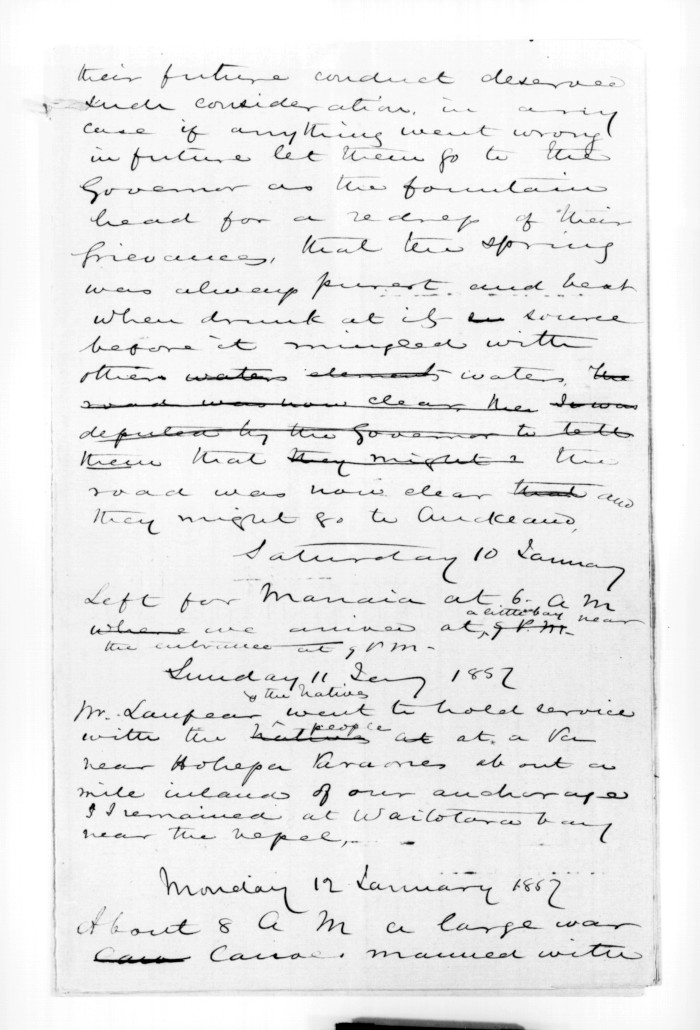 their future conduct deserved
such consideration, in any
case if anything went wrong
in future let them go to the
Governor as the fountain
head for a redress of their
grievances, that the spring
was always purest and best
when drunk at its source
before it mingled with
others waters elements waters, the
road was now clear, then I was
deputed by the Governor to tell
them that they might the
road was now clear that and
they might go to Auckland,
Saturday 10 January
Left for Manaia at 6. A M
where we arrived at, a little bay near 9 P.M.
the entrance at 9 P M -
Sunday 11 Jany 1857
& the Natives
Mr. Lanfear went to hold service
with the Natives people at at a Pa
near Hohepa Paraones about a
mile inland of our anchorage
& I remained at Waitotara bay
near the vessel,
Monday 12 January 1857
About 8 A M a large war
Canoe. manned with